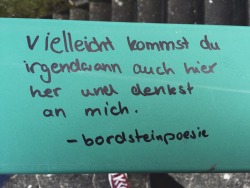 Vielleicht kommst du
irgendwann auch hier
her und denkst
an mich.
- bordsteinpoesie